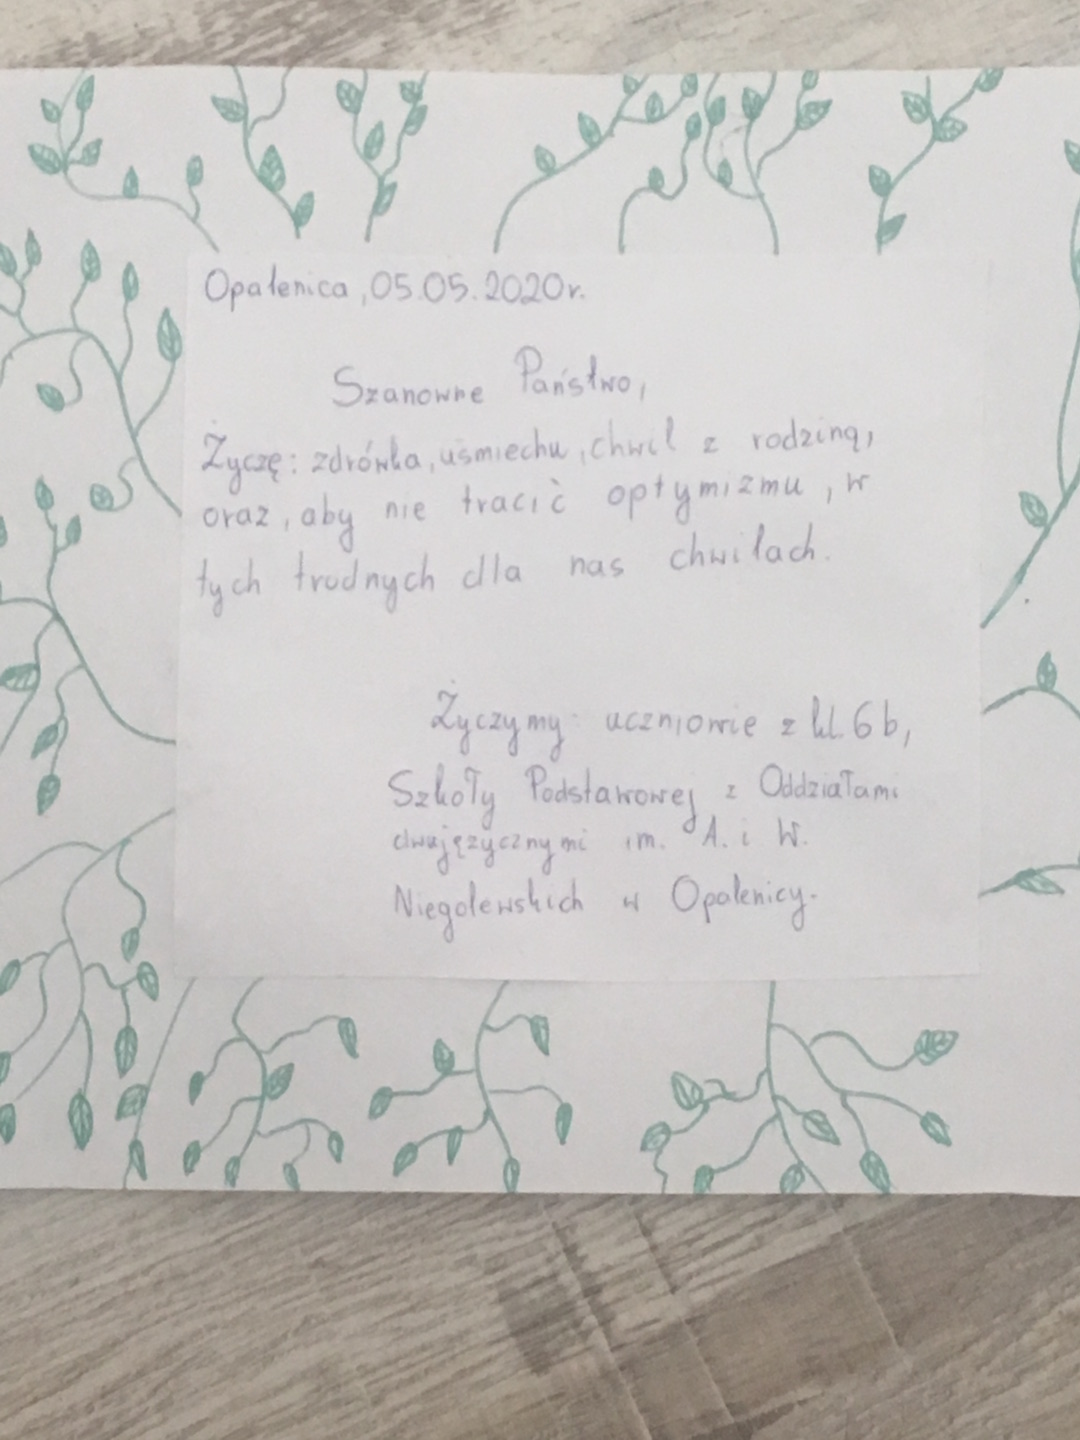 Opalenica, 05.05.2020r.
Szanowne Państwo,
Życzę: zdrówka, uśmiechu, chwil z rodziną,
oraz, aby nie tracić optymizmu, w
tych trudnych dla nas chwilach.
Życzymy: uczniowie z kl. 6 b,
Szkoły Podstawowej z Oddziałami
dwujęzycznymi im. A. i W.
Niegolewskich w Opalenicy.